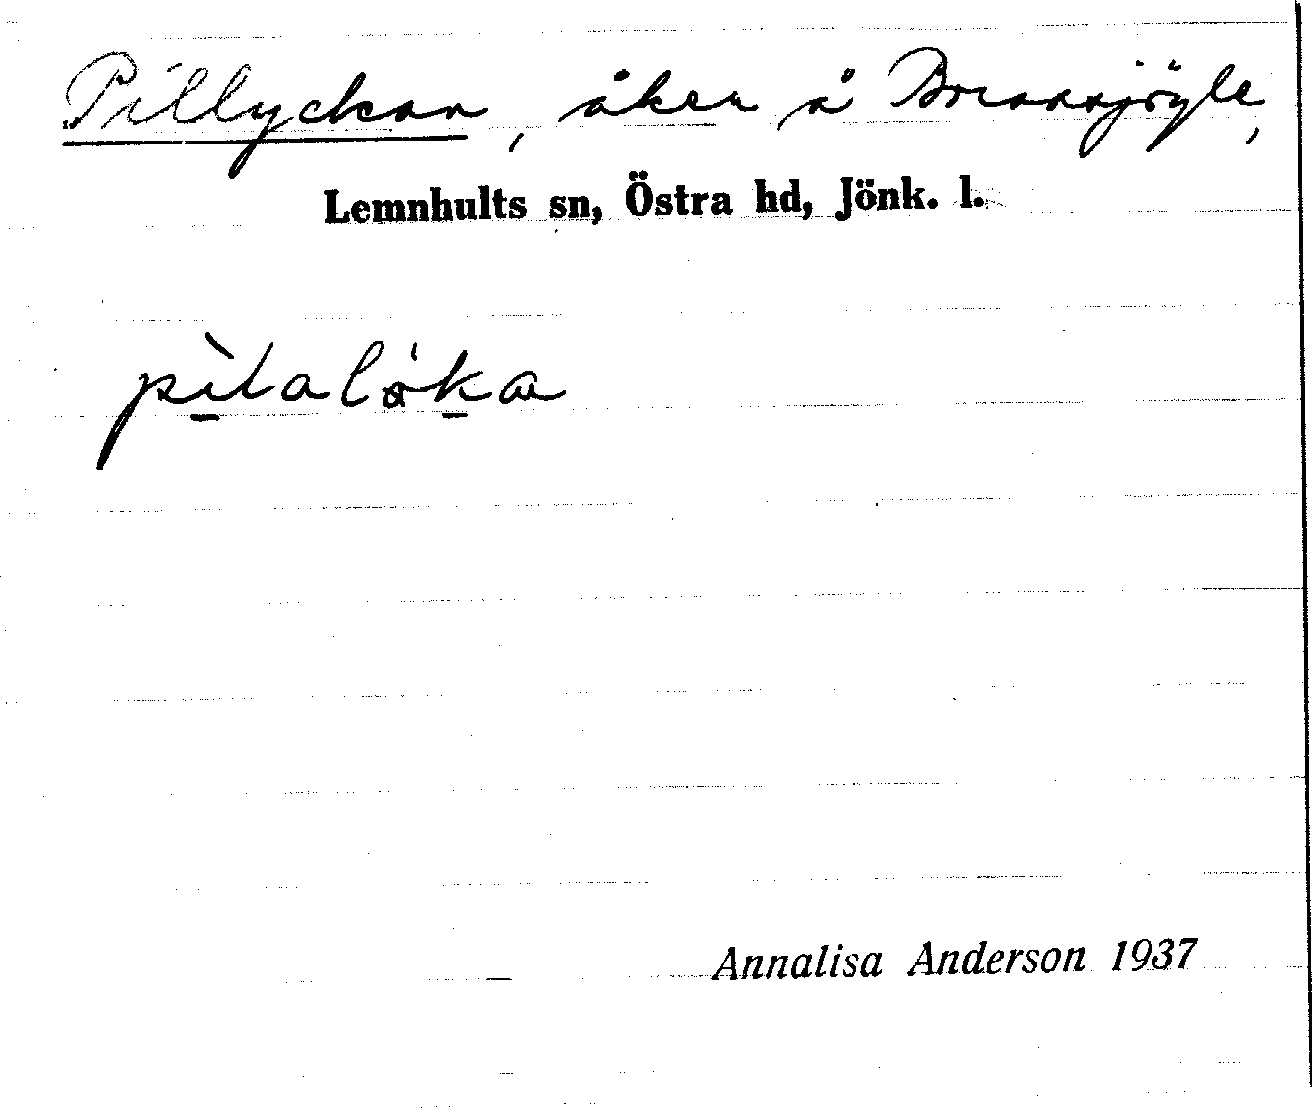 Pillyckan, åker å
Lemnhults sn, Östra hd, Jönk. l.
Annalisa Anderson 1937